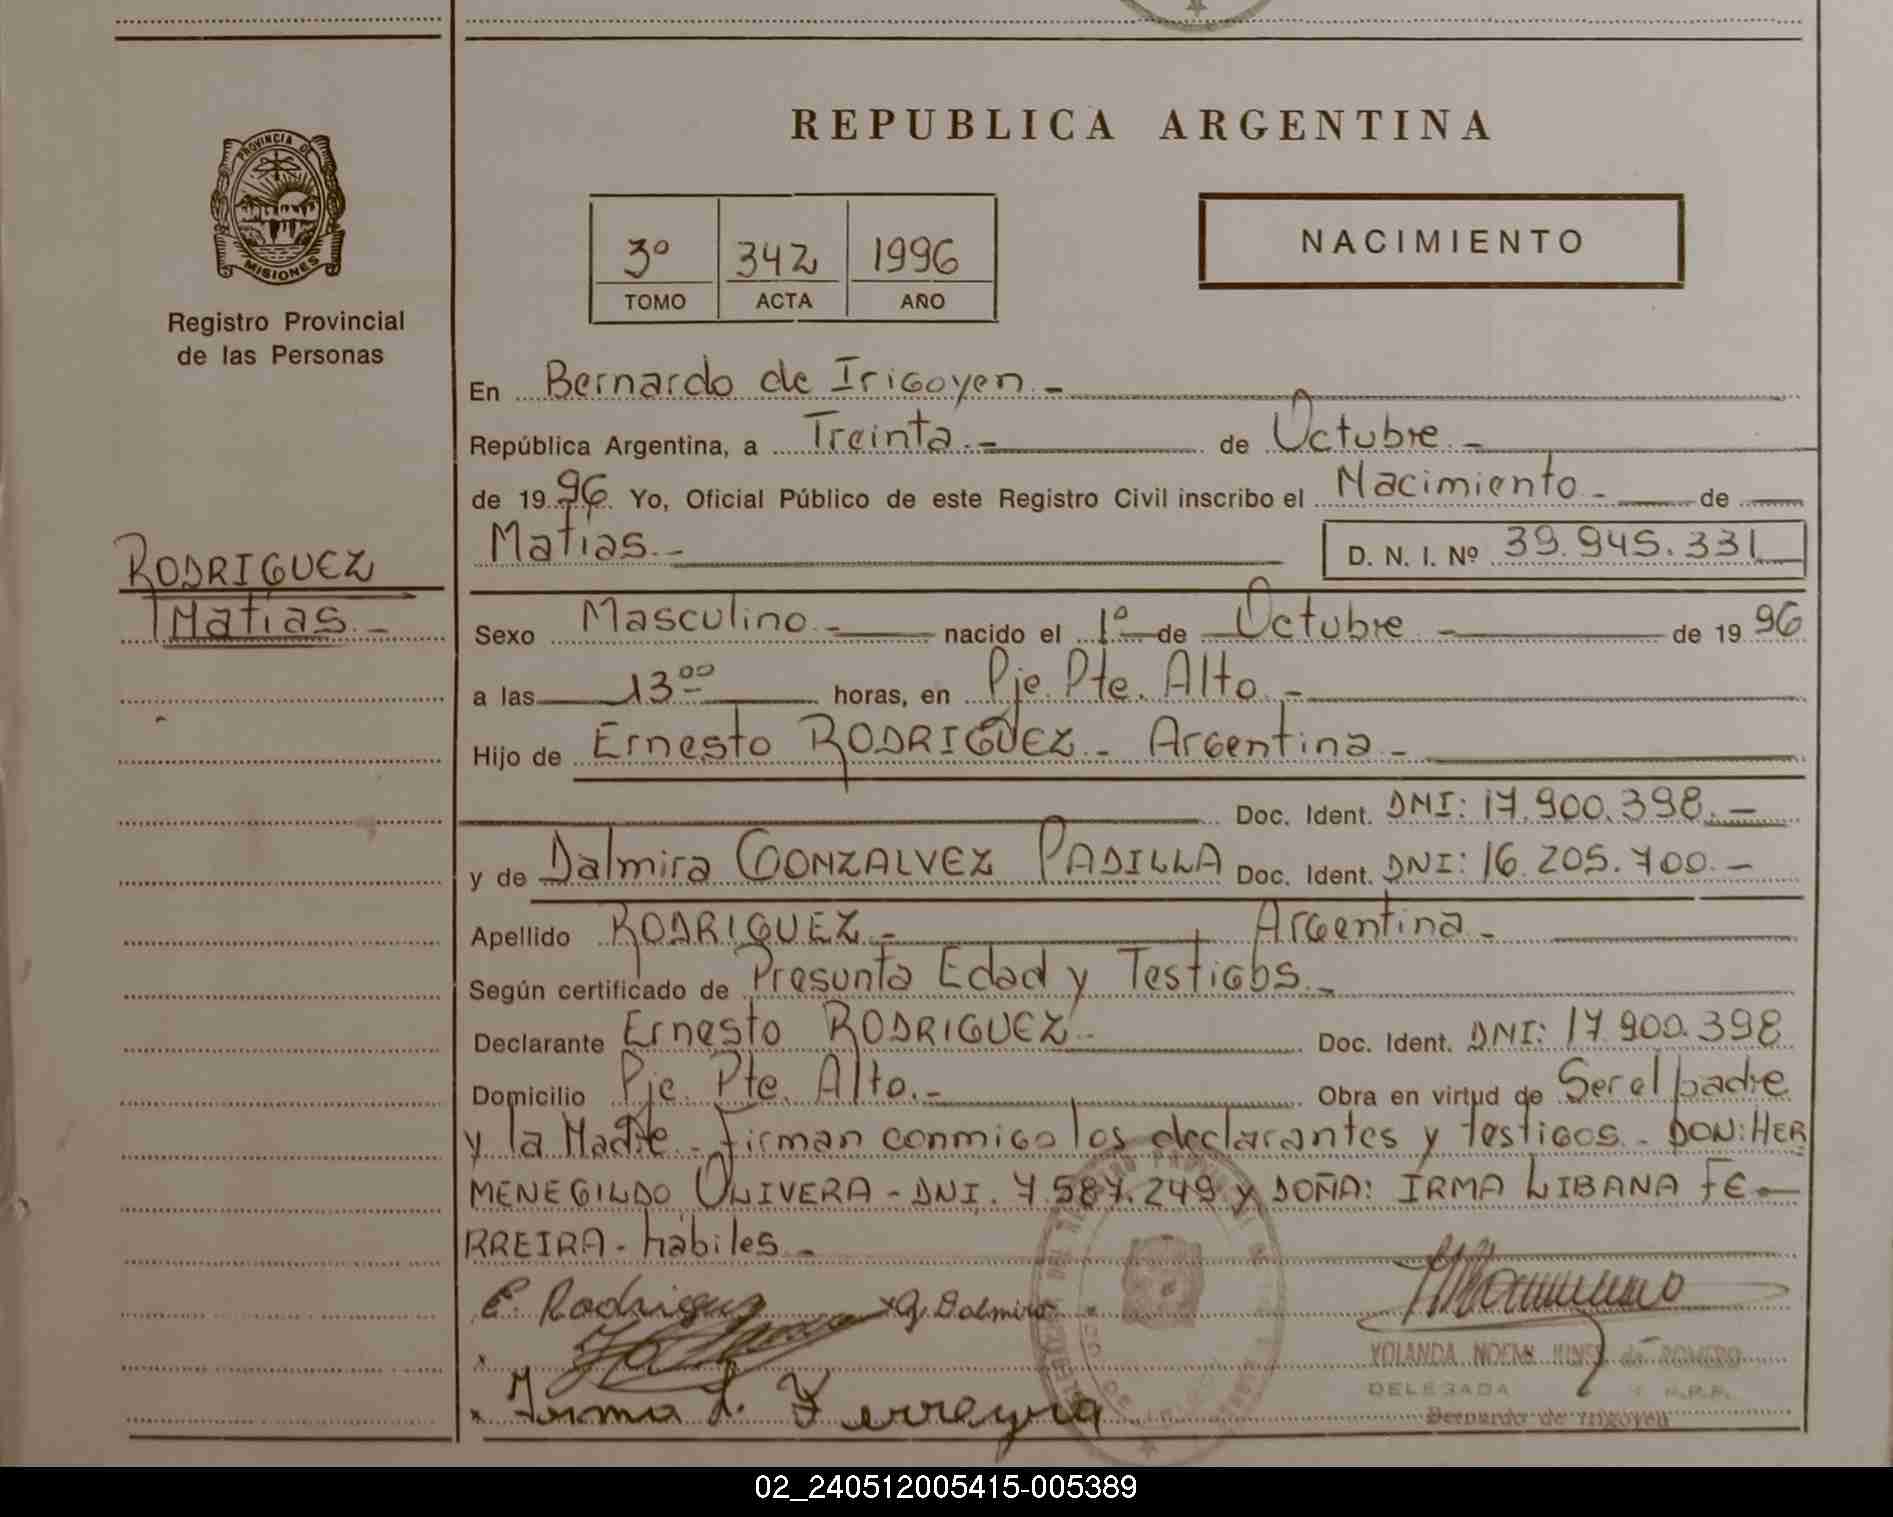 REPUBLICA ARGENTINA
PROVINCIA DE
MISIONES
Registro Provincial
de las Personas
3º 342 1996
TOMO ACTA AÑO
NACIMIENTO
En Bernardo de Irigoyen.-
República Argentina, a Treinta.- de Octubre.-
de 1996. Yo, Oficial Público de este Registro Civil inscribo el Nacimiento.- de
Matias.- D. N. I. Nº 39.945.331
RODRIGUEZ
Matias.-
Sexo Masculino.- nacido el 1º de Octubre.- de 1996
a las 13ºº horas, en Pje. Pte. Alto.-
Hijo de Ernesto RODRIGUEZ.- Argentina.-
Doc. Ident. DNI: 17.900.398.-
y de Dalmira GONZALVEZ PADILLA Doc. Ident. DNI: 16.205.700.-
Apellido RODRIGUEZ.- Argentina.-
Según certificado de Presunta Edad y Testigos.-
Declarante Ernesto RODRIGUEZ.- Doc. Ident. DNI: 17.900.398
Domicilio Pje. Pte. Alto.- Obra en virtud de Ser el padre
y la Madre.- Firman conmigo los declarantes y testigos.- DON: HER
MENEGILDO OLIVERA - DNI. 7.587.249 y DOÑA: IRMA LIBANA FE-
RREIRA - hábiles.-
E. Rodriguez x G. Dalmira
YOLANDA NOEMI de ROMERO
DELEGADA R.P.P.
Bernardo de Irigoyen
x Irma L. Ferreyra
02_240512005415-005389